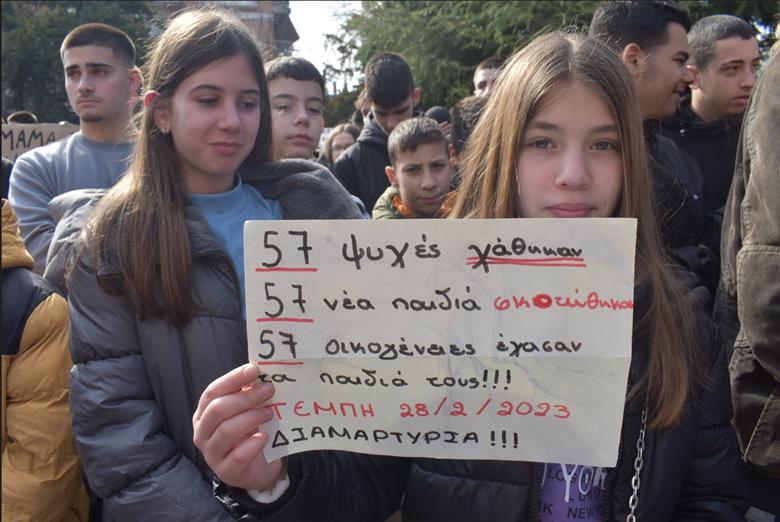 MAMA
57 ψυχές χάθηκαν
57 νέα παιδιά σκοτώθηκαν
57 οικογένειες έχασαν
τα παιδιά τους!!!
ΤΕΜΠΗ 28/2/2023
ΔΙΑΜΑΡΤΥΡΙΑ!!!
YOR
NEW